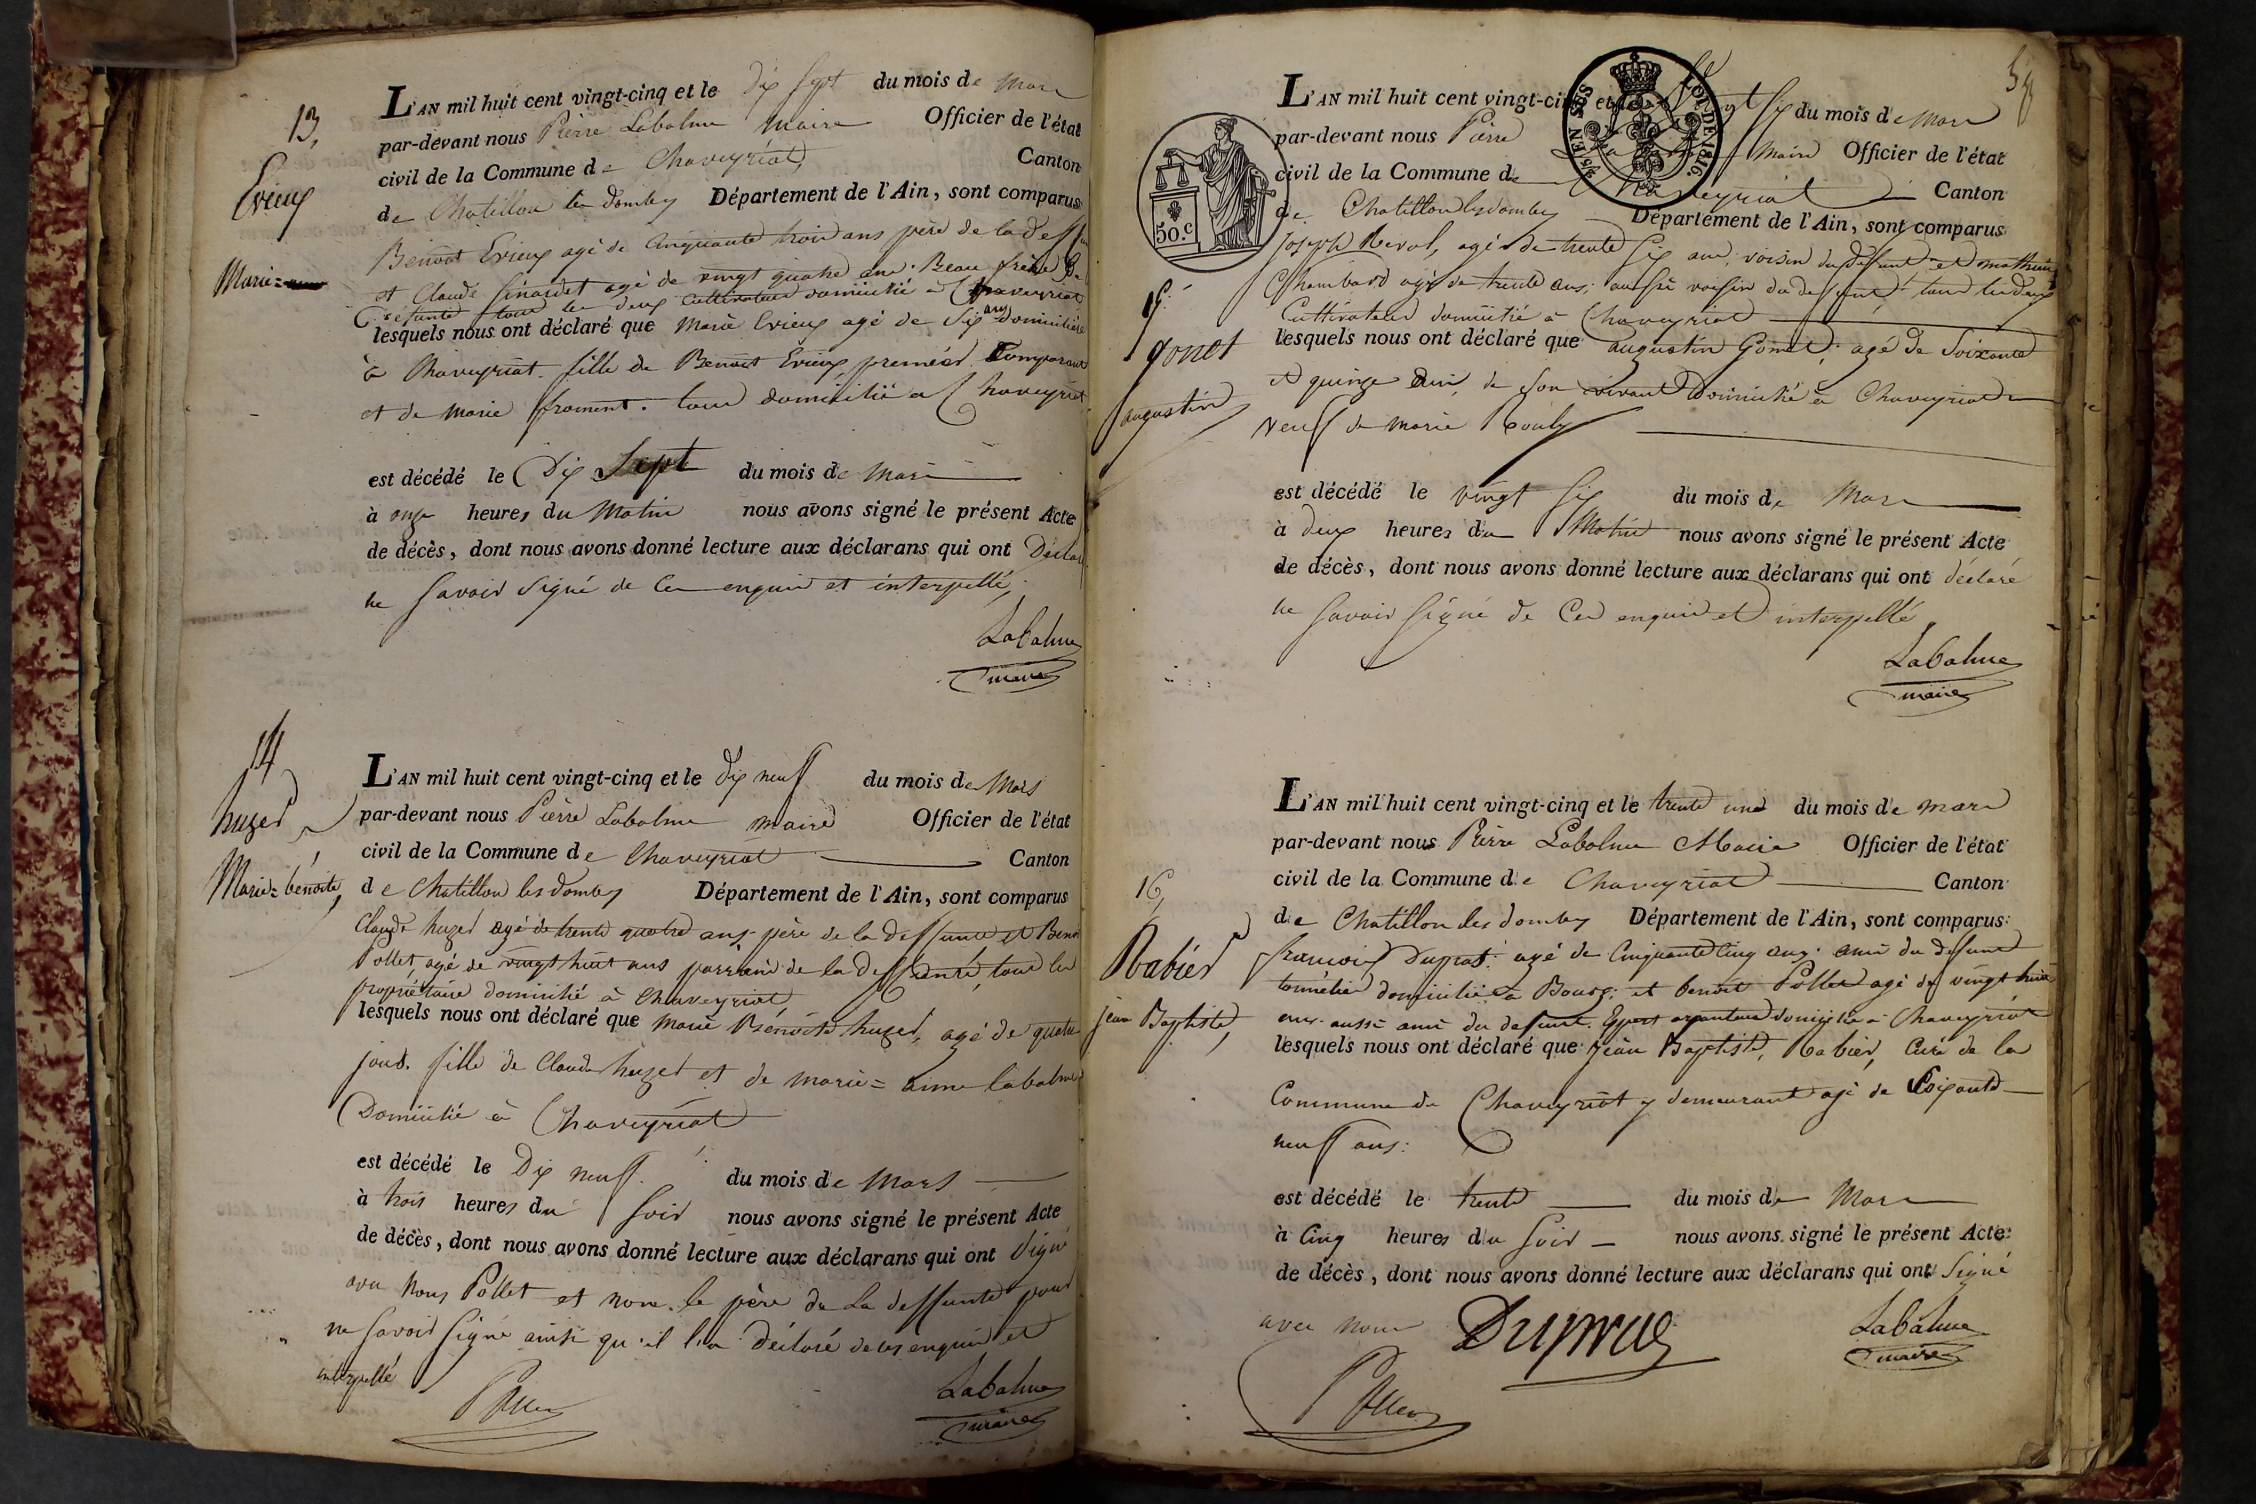 13,
Evieux
Marie
L'AN mil huit cent vingt-cinq et le dix sept du mois de Mars
par-devant nous Pierre Labalme Maire Officier de l'état
civil de la Commune de Chaveyriat, Canton
de Chatillon les dombes Département de l'Ain, sont comparus
Benoit Evieux agé de Cinquante trois ans père de la deffunte
et Claude Sinardet agé de vingt quatre ans Beau frère de
la defunte tous les deux Cultivateurs domicilié à Chaveyriat
lesquels nous ont déclaré que Marie Evieux agé de Six ans domiciliée
à Chaveyriat fille de Benoit Evieux premier Comparant
et de Marie froment. tous domicilié à Chaveyriat
est décédé le Dix Sept du mois de Mars
à onze heures du Matin nous avons signé le présent Acte
de décès, dont nous avons donné lecture aux déclarans qui ont Déclaré
ne Savoir Signé de Ce enquis et interpellé,
Labalme
maire
14
huzet
Marie=benoite,
L'AN mil huit cent vingt-cinq et le dix neuf du mois de Mars
par-devant nous Pierre Labalme maire Officier de l'état
civil de la Commune de Chaveyriat Canton
de Chatillon les dombes Département de l'Ain, sont comparus
Claude huzet agé de trente quatre ans père de la deffunte et Benoit
Pollet agé de vingt huit ans parrain de la deffunte, tous les
propriétaire domicilié à Chaveyriat
lesquels nous ont déclaré que Marie Bénoite huzet, agé de quatre
jours. fille de Claude huzet et de marie= anne labalme
Domicilié à Chaveyriat
est décédé le Dix neuf du mois de Mars
à trois heures du Soir nous avons signé le présent Acte
de décès, dont nous avons donné lecture aux déclarans qui ont Signé
avec Nous Pollet et non le père de La deffunte pour
ne Savoir Signé ainsi qu'il l'a déclaré de ce enquis et
interpellé
Pollet
Labalme
maire
58
50.c
LOI DE 1816.
15
gonet
augustin
L'AN mil huit cent vingt-cinq et le vingt six du mois de Mars
par-devant nous Pierre Maire Officier de l'état
civil de la Commune de Chaveyriat Canton
de Chatillon les dombes Département de l'Ain, sont comparus
Joseph Revol, agé de trente Six ans, voisin du défunt et mathieu
Chambard agé de trente ans, aussi voisin du defunt, tous les deux
Cultivateurs domicilié à Chaveyriat
lesquels nous ont déclaré que augustin Gonet, agé de Soixante
et quinze ans, de Son vivant Domicilié à Chaveyriat
veuf de marie Rouly
est décédé le vingt Six du mois de Mars
à deux heures du Matin nous avons signé le présent Acte
de décès, dont nous avons donné lecture aux déclarans qui ont déclaré
ne Savoir Signé de Ce enquis et interpellé
Labalme
maire
16,
Rabier
jean Baptiste,
L'AN mil huit cent vingt-cinq et le trente une du mois de mars
par-devant nous Pierre Labalme Maire Officier de l'état
civil de la Commune de Chaveyriat Canton
de Chatillon les dombes Département de l'Ain, sont comparus
francois Duprat agé de Cinquante Cinq ans ami du defunt
tonnelier domicilié à Bourg, et benoit Pollet agé de vingt huit
ans aussi ami du defunt. Expert arpenteur domicilié à Chaveyriat
lesquels nous ont déclaré que Jean Baptiste, Rabier, Curé de la
Commune de Chaveyriat y demeurant agé de Soixante
neuf ans:
est décédé le trente du mois de Mars
à Cinq heures du Soir nous avons signé le présent Acte
de décès, dont nous avons donné lecture aux déclarans qui ont Signé
avec nous
Labalme
maire
Pollet